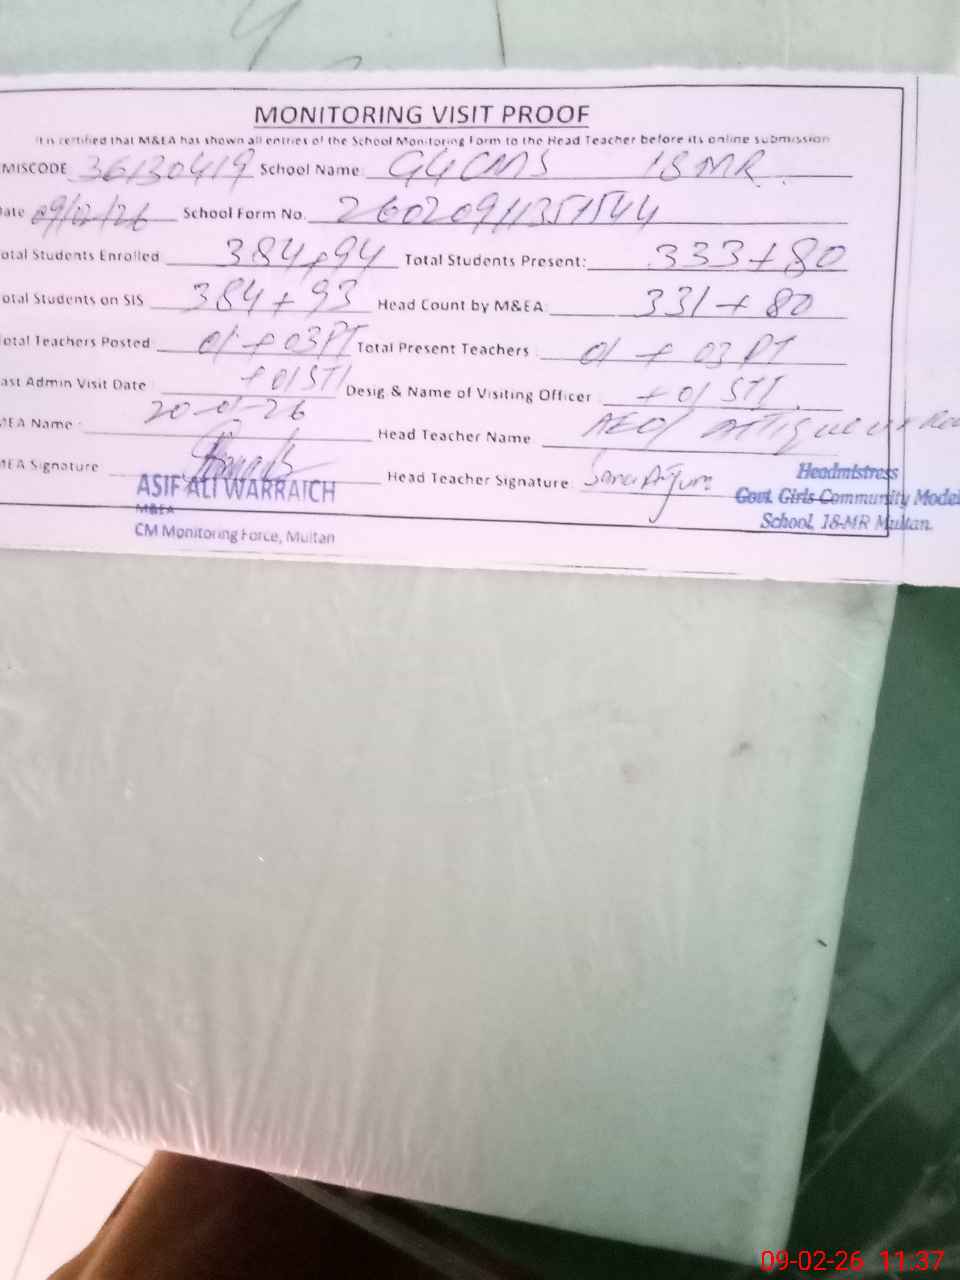 MONITORING VISIT PROOF
It is certified that M&EA has shown all entries of the School Monitoring Form to the Head Teacher before its online submission
MISCODE 36130419 School Name GGCMS 18 MR
ate 09/02/26 School Form No. 26020911351544
otal Students Enrolled 384+94 Total Students Present: 333+80
otal Students on SIS 384+93 Head Count by M&EA: 331+80
otal Teachers Posted 01+03PT Total Present Teachers 01+03PT
+01STI +01 STI
ast Admin Visit Date 20-01-26 Desig. & Name of Visiting Officer AEO
MEA Name Head Teacher Name
MEA Signature Head Teacher Signature: Sana Anjum
ASIF ALI WARRAICH
M&EA
CM Monitoring Force, Multan
Headmistress
Govt. Girls Community Model
School, 18-MR Multan.
09-02-26 11:37